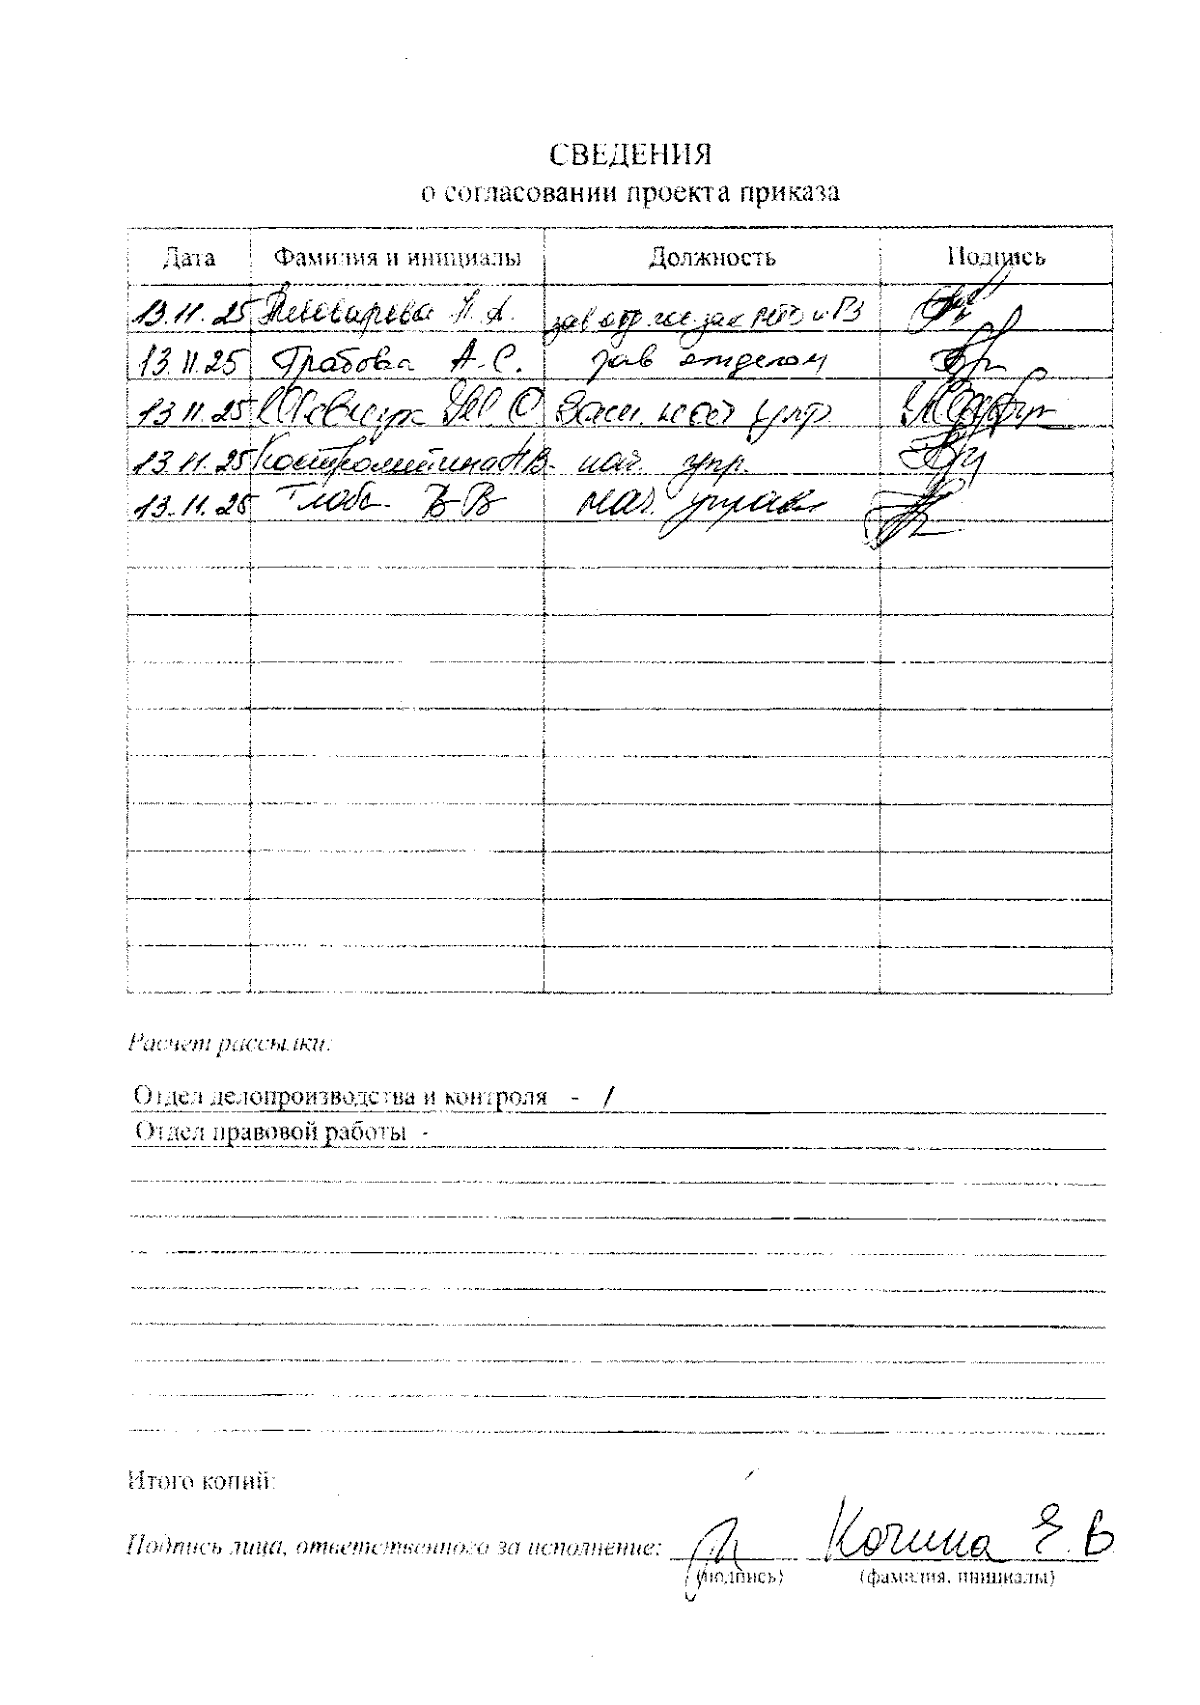 СВЕДЕНИЯ
о согласовании проекта приказа
Дата Фамилия и инициалы Должность Подпись
13.11.25 Пивоварова Н.А. зав отд гос зак МТО и ГЗ
13.11.25 Грабова А.С. зав отделом
13.11.25 Шевчук О зам. нач упр.
13.11.25 Костромитина Н.В. нач. упр.
13.11.25 Глоба В В нач. управл
Расчет рассылки:
Отдел делопроизводства и контроля - /
Отдел правовой работы -
Итого копий:
Подпись лица, ответственного за исполнение: Кочина Е.В
(подпись) (фамилия, инициалы)